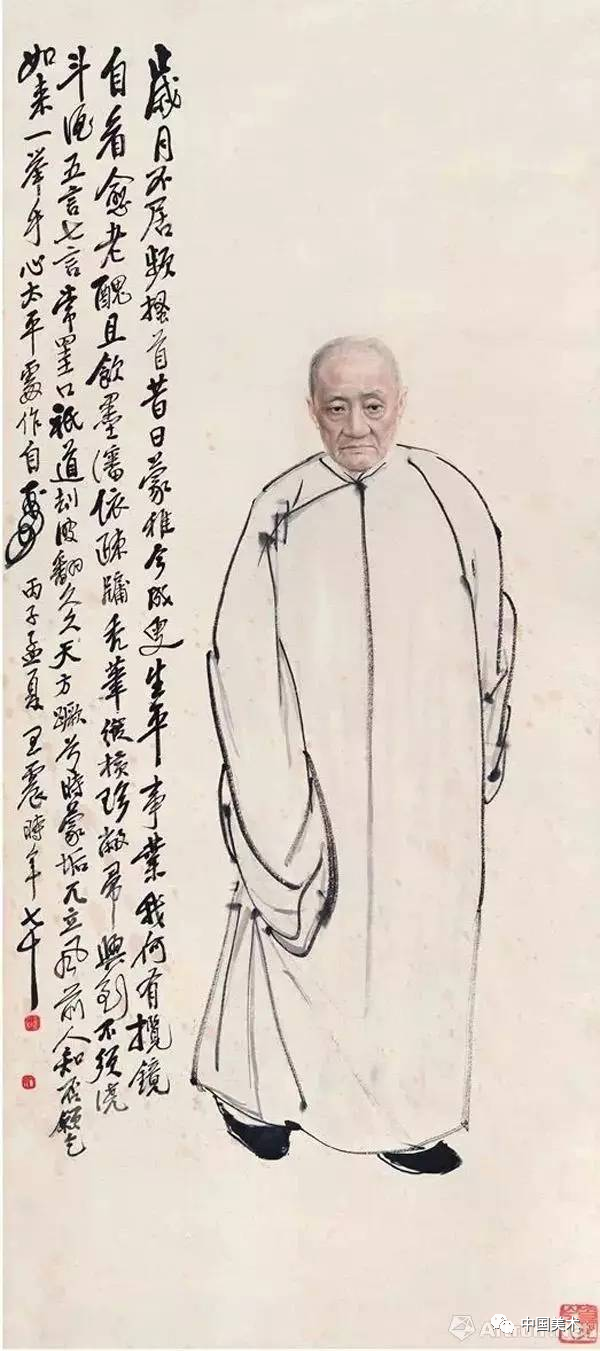 歲月不居頻搔首昔日蒙稚今成叟生平事業我何有攬鏡
自看愈老醜且飲墨瀋依疎牖禿筆縱橫珍敝帚興到不須澆
斗酒五言七言常罣口祇道刦波翻久久天方蹶兮時蒙垢兀立風前人知否願乞
如來一舉手心太平處作自壽 丙子孟夏王震時年七十
中国美术